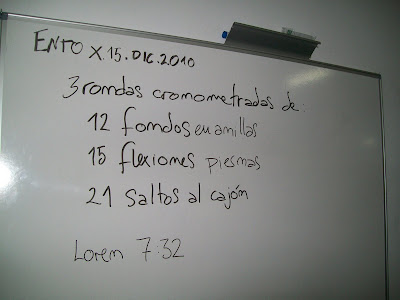 ENTO X.15.DIC.2010
3 rondas cronometradas de:
12 fondos en anillas
15 flexiones piernas
21 saltos al cajón
Lorem 7:32